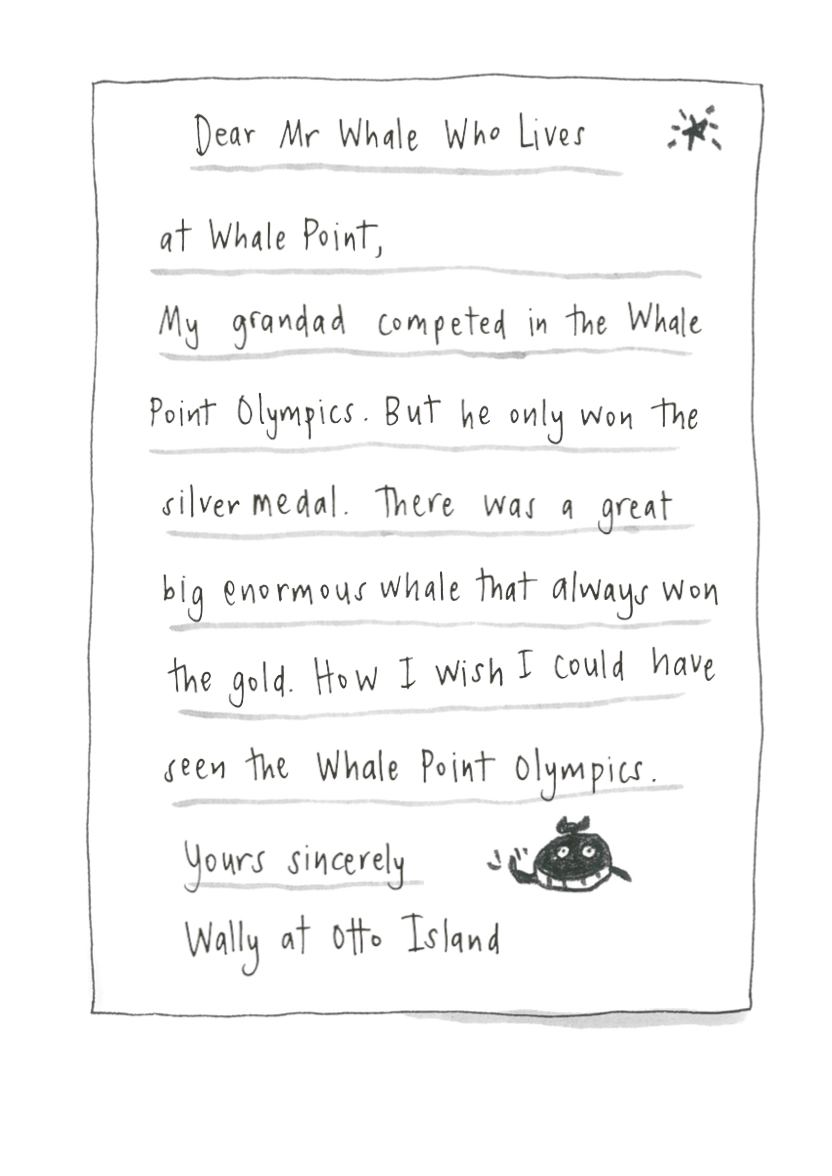 Dear Mr Whale Who Lives
at Whale Point,
My grandad competed in the Whale
Point Olympics. But he only won the
silver medal. There was a great
big enormous whale that always won
the gold. How I wish I could have
seen the Whale Point Olympics.
Yours sincerely
Wally at Otto Island